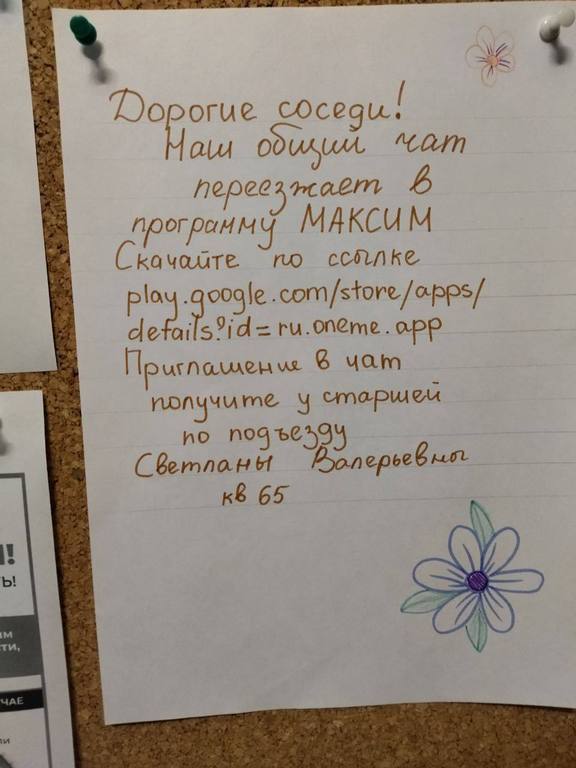 Дорогие соседи!
Наш общий чат
переезжает в
программу МАКСИМ
Скачайте по ссылке
play.google.com/store/apps/
details?id=ru.oneme.app
Приглашение в чат
получите у старшей
по подъезду
Светланы Валерьевны
кв 65
И!
ТЬ!
ЧАЕ